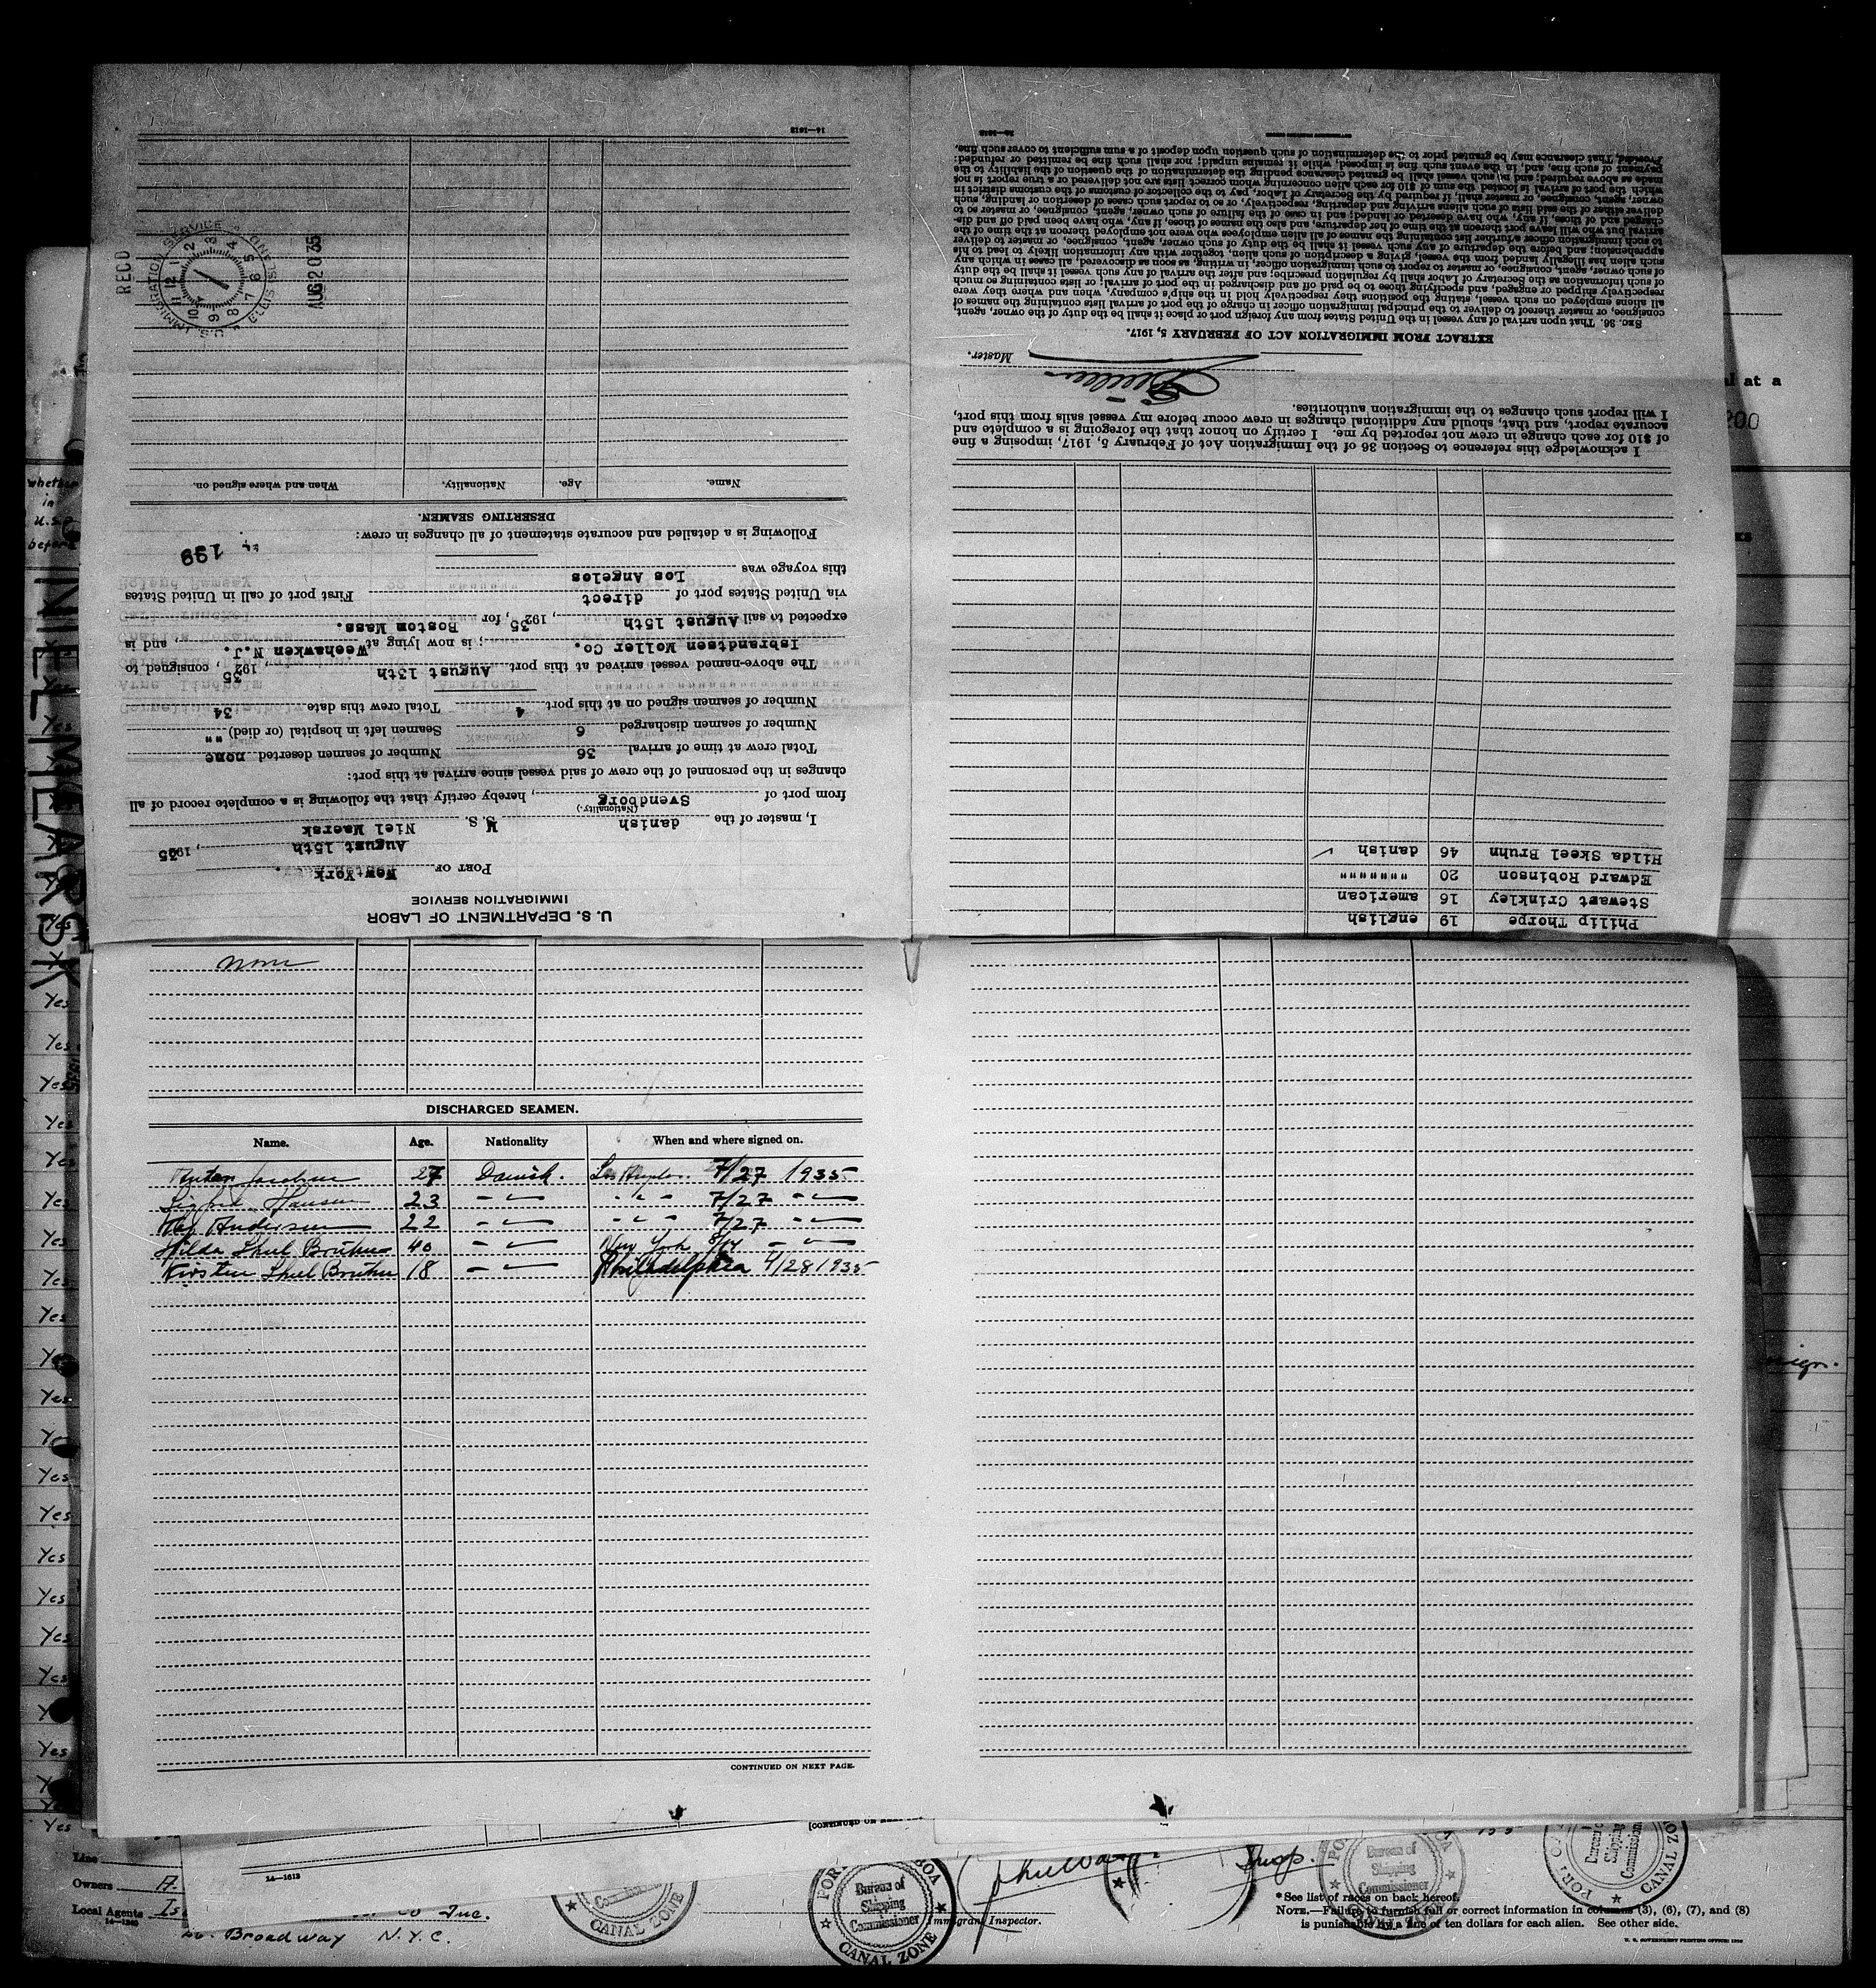 U. S. DEPARTMENT OF LABOR
IMMIGRATION SERVICE
PORT OF New York.
August 15th, 1935
I, master of the danish M S. S. Niel Maersk
(Nationality.)
from port of Svendborg, hereby certify that the following is a complete record of all
changes in the personnel of the crew of said vessel since arrival at this port:
Total crew at time of arrival 36 Number of seamen deserted none
Number of seamen discharged 6 Seamen left in hospital (or died) ""
Number of seamen signed on at this port 4 Total crew this date 34
The above-named vessel arrived at this port August 13th, 1935, consigned to
Isbrandtsen Moller Co.; is now lying at Weehawken N.J., and is
expected to sail August 15th, 1935, for Boston Mass.
via United States port of direct First port of call in United States
this voyage was Los Angelos
199
Following is a detailed and accurate statement of all changes in crew:
DESERTING SEAMEN.
Name. Age. Nationality. When and where signed on.
REC'D
U.S. IMMIGRATION SERVICE
AUG 20 35
14—1612
Philip Thorpe 19 english
Stewart Crinkley 16 american
Edward Robinson 20 """""""
Hilda Skeel Bruhn 46 danish ✓
I acknowledge this reference to Section 36 of the Immigration Act of February 5, 1917, imposing a fine
of $10 for each change in crew not reported by me. I certify on honor that the foregoing is a complete and
accurate report, and that, should any additional changes in crew occur before my vessel sails from this port,
I will report such changes to the immigration authorities.
Master.
EXTRACT FROM IMMIGRATION ACT OF FEBRUARY 5, 1917.
SEC. 36. That upon arrival of any vessel in the United States from any foreign port or place it shall be the duty of the owner, agent,
consignee, or master thereof to deliver to the principal immigration officer in charge of the port of arrival lists containing the names of
all aliens employed on such vessel, stating the positions they respectively hold in the ship's company, when and where they were
respectively shipped or engaged, and specifying those to be paid off and discharged in the port of arrival; or lists containing so much
of such information as the Secretary of Labor shall by regulation prescribe; and after the arrival of any such vessel it shall be the duty
of such owner, agent, consignee, or master to report to such immigration officer, in writing, as soon as discovered, all cases in which any
such alien has illegally landed from the vessel, giving a description of such alien, together with any information likely to lead to his
apprehension; and before the departure of any such vessel it shall be the duty of such owner, agent, consignee, or master to deliver
to such immigration officer a further list containing the names of all alien employees who were not employed thereon at the time of the
arrival but who will leave port thereon at the time of her departure, and also the names of those, if any, who have been paid off and dis-
charged and of those, if any, who have deserted or landed; and in case of the failure of such owner, agent, consignee, or master so to
deliver either of the said lists of such aliens arriving and departing, respectively, or so to report such cases of desertion or landing, such
owner, agent, consignee, or master shall, if required by the Secretary of Labor, pay to the collector of customs of the customs district in
which the port of arrival is located the sum of $10 for each alien concerning whom correct lists are not delivered or a true report is not
made as above required; and no such vessel shall be granted clearance pending the determination of the question of the liability to the
payment of such fine, and, in the event such fine is imposed, while it remains unpaid; nor shall such fine be remitted or refunded:
Provided, That clearance may be granted prior to the determination of such question upon deposit of a sum sufficient to cover such fine.
none
DISCHARGED SEAMEN.
Name. Age. Nationality When and where signed on.
27 Danish. Los Angeles. 7/27 1935
Sigfred Hansen 23 - " - " - 7/27 - "
Andersen 22 - " - " - 7/27 - "
Hilda Skeel Bruhn 40 - " New York 8/14 - "
Kirsten Skeel Bruhn 18 - " Philadelphia 4/28 1935
CONTINUED ON NEXT PAGE.
whether
in
U.S.
before
Yes
Yes
Yes
Yes
Yes
Yes
Yes
Yes
Yes
Yes
Yes
Yes
Yes
Yes
Yes
Yes
Yes
Yes
NIEL MAERSK
al at a
200
Line
Owners A.
Local Agents
14—1613
Inc.
Broadway N.Y.C.
CANAL ZONE
Bureau of
Shipping
Commissioner
CANAL ZONE
Immigrant Inspector.
Insp.
Bureau of
Shipping
Commissioner
CANAL ZONE
*See list of races on back hereof.
NOTE.—Failure to furnish full or correct information in columns (3), (6), (7), and (8)
is punishable by a fine of ten dollars for each alien. See other side.
U. S. GOVERNMENT PRINTING OFFICE